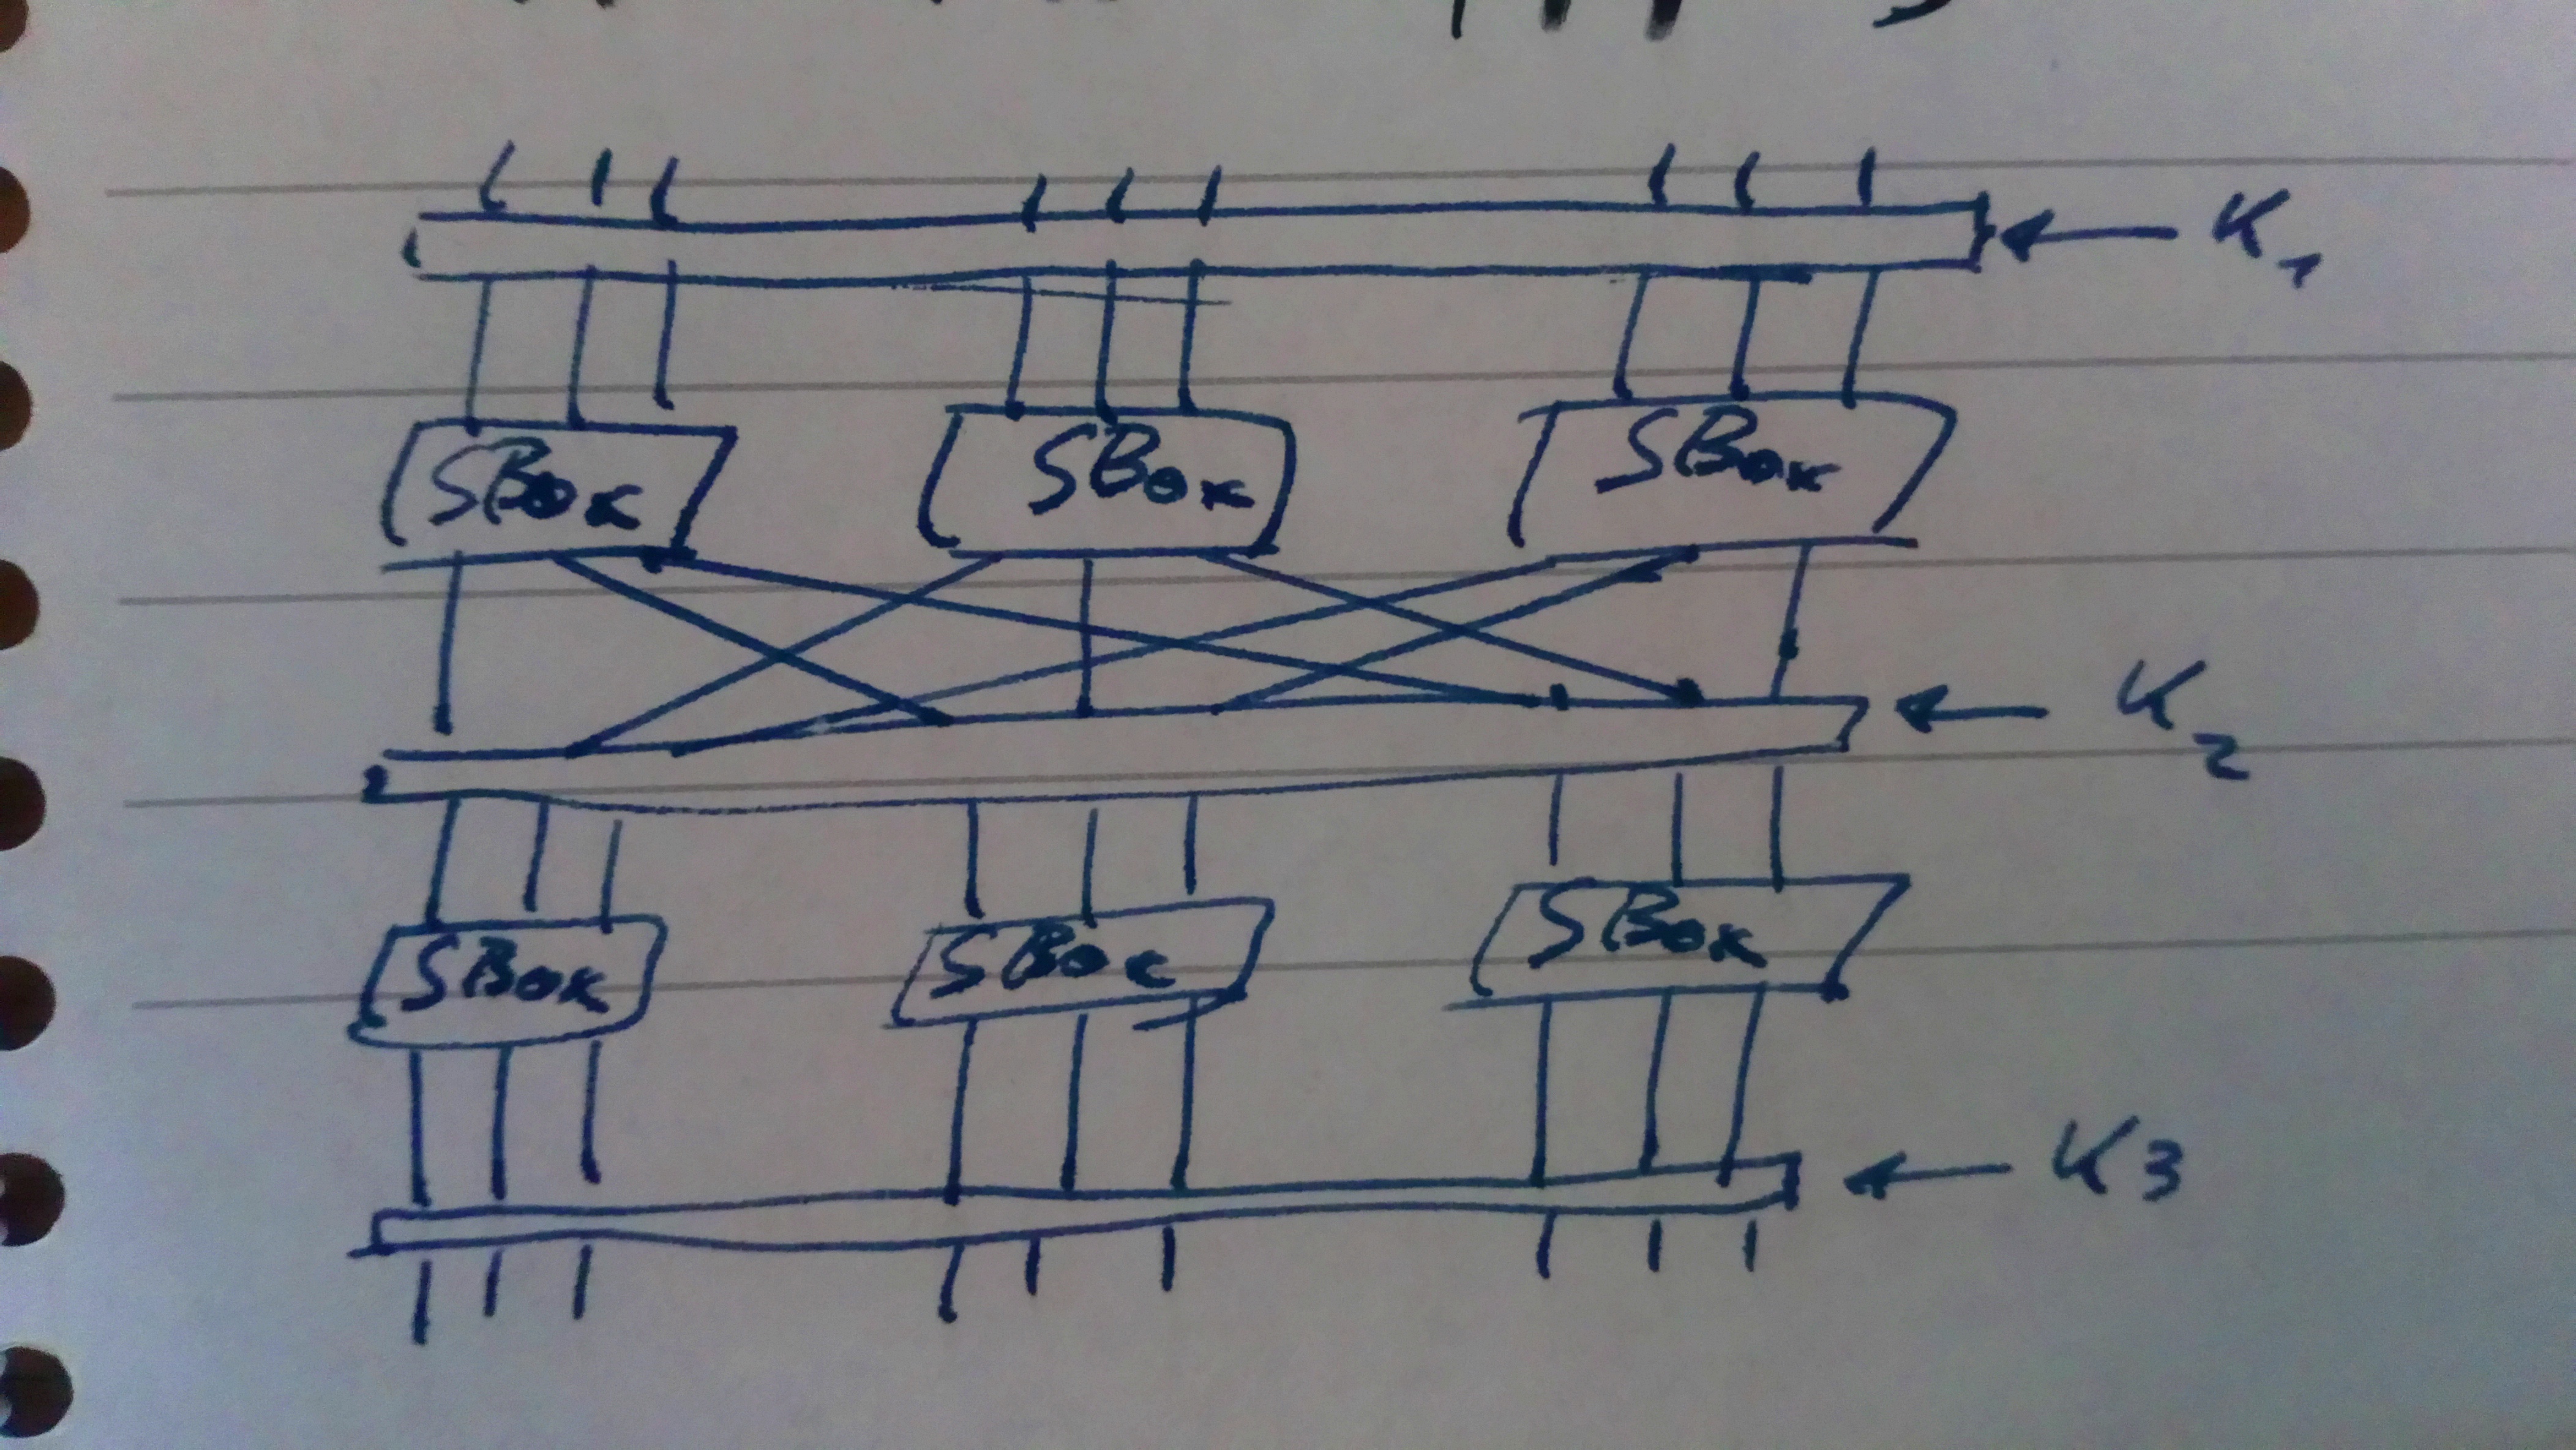 K1
SBox SBox SBox
K2
SBox SBox SBox
K3